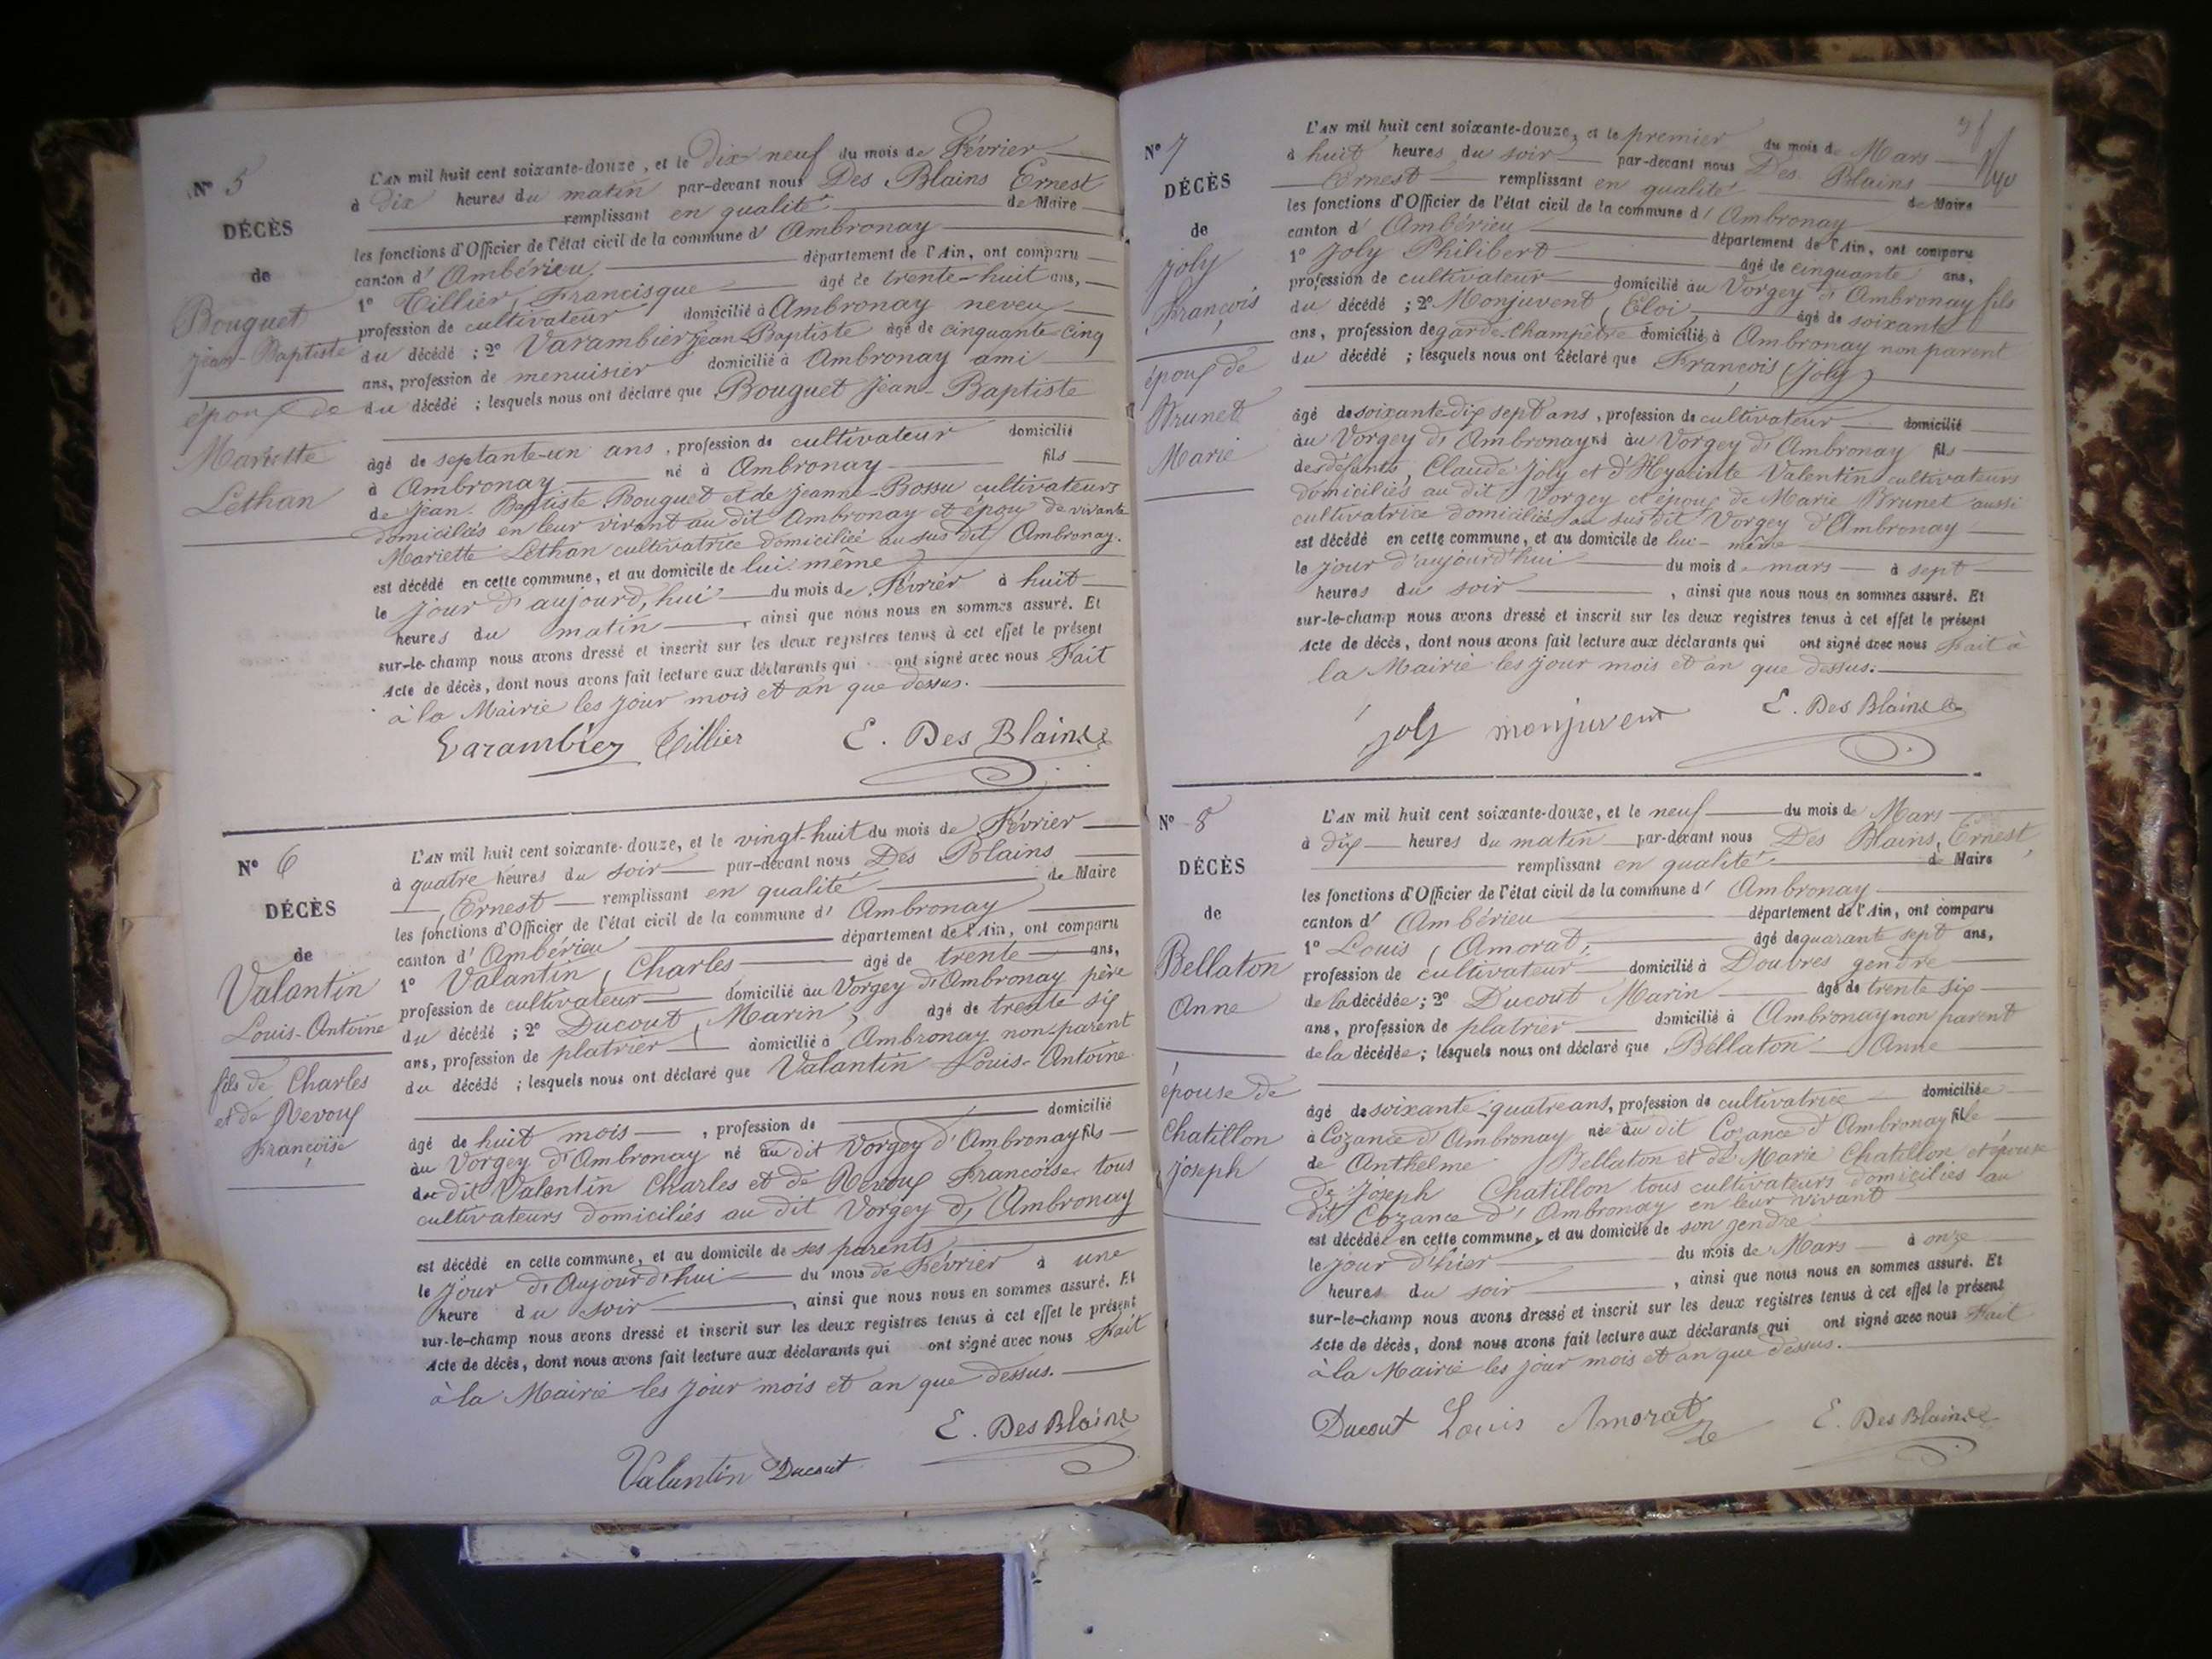 Nº 5
DÉCÈS
de
Bouguet
Jean-Baptiste
époux de
Mariette
Lethan
L'AN mil huit cent soixante-douze, et le dix neuf du mois de Février
à dix heures du matin par-devant nous Des Blains Ernest
remplissant en qualité de Maire
les fonctions d'Officier de l'état civil de la commune d' Ambronay
canton d' Ambérieu département de l'Ain, ont comparu
1º Tillier, Francisque âgé de trente-huit ans,
profession de cultivateur domicilié à Ambronay neveu
du décédé ; 2º Varambier Jean Baptiste âgé de cinquante-cinq
ans, profession de menuisier domicilié à Ambronay ami
du décédé ; lesquels nous ont déclaré que Bouguet Jean-Baptiste
âgé de septante-un ans, profession de cultivateur domicilié
à Ambronay né à Ambronay fils
de Jean-Baptiste Bouguet et de Jeanne Bossu cultivateurs
domiciliés en leur vivant au dit Ambronay et époux de vivante
Mariette Lethan cultivatrice domiciliée au sus dit Ambronay.
est décédé en cette commune, et au domicile de lui même
le jour d'aujourd'hui du mois de Février à huit
heures du matin, ainsi que nous nous en sommes assuré. Et
sur-le-champ nous avons dressé et inscrit sur les deux registres tenus à cet effet le présent
Acte de décès, dont nous avons fait lecture aux déclarants qui ont signé avec nous Fait
à la Mairie les jour mois et an que dessus.
Varambier Tillier E. Des Blains
Nº 6
DÉCÈS
de
Valantin
Louis-Antoine
fils de Charles
et de Revoux
Françoise
L'AN mil huit cent soixante-douze, et le vingt-huit du mois de Février
à quatre heures du soir par-devant nous Des Blains
Ernest remplissant en qualité de Maire
les fonctions d'Officier de l'état civil de la commune d' Ambronay
canton d' Ambérieu département de l'Ain, ont comparu
1º Valantin, Charles âgé de trente ans,
profession de cultivateur domicilié au Vorgey d'Ambronay père
du décédé ; 2º Ducout, Marin, âgé de trente six
ans, profession de platrier domicilié à Ambronay non parent
du décédé ; lesquels nous ont déclaré que Valantin Louis-Antoine
âgé de huit mois, profession de domicilié
au Vorgey d'Ambronay né au dit Vorgey d'Ambronay fils
du dit Valantin Charles et de Revoux Francoise tous
cultivateurs domiciliés au dit Vorgey d'Ambronay
est décédé en cette commune, et au domicile de ses parents
le jour d'Aujourd'hui du mois de Février à une
heure du soir, ainsi que nous nous en sommes assuré. Et
sur-le-champ nous avons dressé et inscrit sur les deux registres tenus à cet effet le présent
Acte de décès, dont nous avons fait lecture aux déclarants qui ont signé avec nous Fait
à la Mairie les jour mois et an que dessus.
E. Des Blains
Valantin Ducout
Nº 7
DÉCÈS
de
Joly
François
époux de
Brunet
Marie
L'AN mil huit cent soixante-douze, et le premier du mois de Mars
à huit heures du soir par-devant nous Des Blains
Ernest remplissant en qualité de Maire
les fonctions d'Officier de l'état civil de la commune d' Ambronay
canton d' Ambérieu département de l'Ain, ont comparu
1º Joly Philibert âgé de cinquante ans,
profession de cultivateur domicilié au Vorgey d'Ambronay fils
du décédé ; 2º Monjuvent, Eloi, âgé de soixante
ans, profession de garde-Champêtre domicilié à Ambronay non parent
du décédé ; lesquels nous ont déclaré que Francois (Joly)
âgé de soixante-dix sept ans, profession de cultivateur domicilié
au Vorgey d'Ambronay né au Vorgey d'Ambronay fils
des défunts Claude Joly et d'Hyacinte Valentin cultivateurs
domiciliés au dit Vorgey et époux de Marie Brunet aussi
cultivatrice domiciliée au sus dit Vorgey d'Ambronay
est décédé en cette commune, et au domicile de lui-même
le jour d'aujourd'hui du mois de mars à sept
heures du soir, ainsi que nous nous en sommes assuré. Et
sur-le-champ nous avons dressé et inscrit sur les deux registres tenus à cet effet le présent
Acte de décès, dont nous avons fait lecture aux déclarants qui ont signé avec nous Fait à
la Mairie les jour mois et an que dessus.
joly monjuvent E. Des Blains
Nº 8
DÉCÈS
de
Bellaton
Anne
épouse de
Chatillon
Joseph
L'AN mil huit cent soixante-douze, et le neuf du mois de Mars
à dix heures du matin par-devant nous Des Blains, Ernest,
remplissant en qualité de Maire
les fonctions d'Officier de l'état civil de la commune d' Ambronay
canton d' Ambérieu département de l'Ain, ont comparu
1º Louis, Amorat, âgé de quarante sept ans,
profession de cultivateur domicilié à Douvres gendre
de la décédée ; 2º Ducout Marin âgé de trente six
ans, profession de platrier domicilié à Ambronay non parent
de la décédée ; lesquels nous ont déclaré que Bellaton Anne
âgé de soixante-quatre ans, profession de cultivatrice domiciliée
à Cozance d'Ambronay née au dit Cozance d'Ambronay fille
de Anthelme Bellaton et de Marie Chatillon et épouse
de Joseph Chatillon tous cultivateurs domiciliés au
dit Cozance d'Ambronay en leur vivant
est décédée en cette commune, et au domicile de son gendre
le jour d'hier du mois de Mars à onze
heures du soir, ainsi que nous nous en sommes assuré. Et
sur-le-champ nous avons dressé et inscrit sur les deux registres tenus à cet effet le présent
Acte de décès, dont nous avons fait lecture aux déclarants qui ont signé avec nous Fait
à la Mairie les jour mois et an que dessus.
Ducout Louis Amorat E. Des Blains